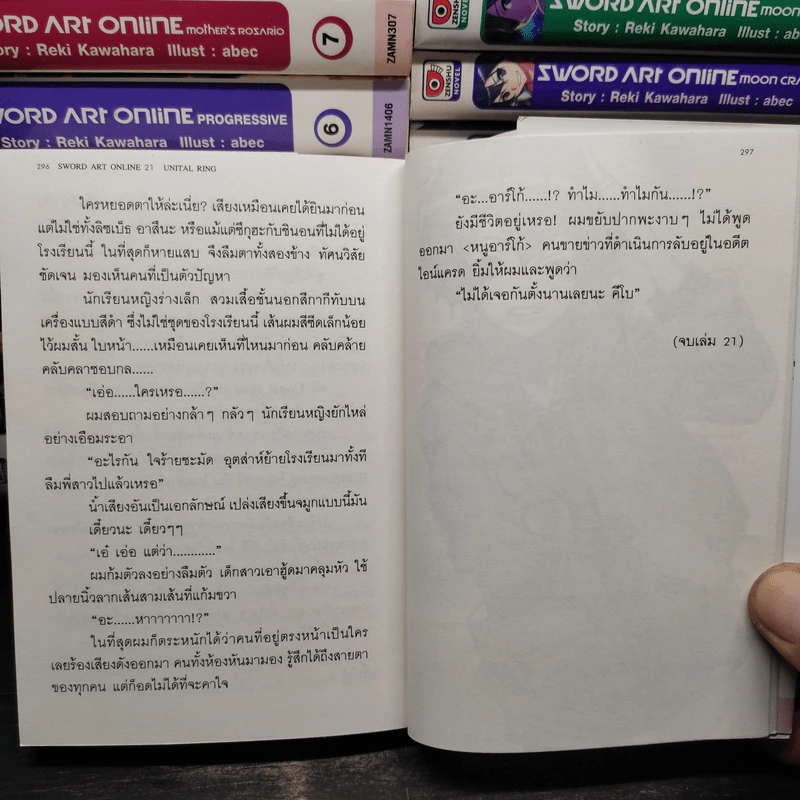 SWORD ART ONLINE mother's ROSARIO
Story : Reki Kawahara Illust : abec
7
ZAMN307
SWORD ART ONLINE PROGRESSIVE
Story : Reki Kawahara Illust : abec
6
ZAMN1406
ZENSHU NOVEL
SWORD ART ONLINE moon
Story : Reki Kawahara Illust : abec
ZENSHU NOVEL
SWORD ART ONLINE moon CRA
Story : Reki Kawahara Illust : abec
296 SWORD ART ONLINE 21 UNITAL RING
ใครหยอดตาให้ล่ะเนี่ย? เสียงเหมือนเคยได้ยินมาก่อน
แต่ไม่ใช่ทั้งลิซเบ็ธ อาสึนะ หรือแม้แต่ซึกุฮะกับชินอนที่ไม่ได้อยู่
โรงเรียนนี้ ในที่สุดก็หายแสบ จึงลืมตาทั้งสองข้าง ทัศนวิสัย
ชัดเจน มองเห็นคนที่เป็นตัวปัญหา
นักเรียนหญิงร่างเล็ก สวมเสื้อชั้นนอกสีกากีทับบน
เครื่องแบบสีดำ ซึ่งไม่ใช่ชุดของโรงเรียนนี้ เส้นผมสีซีดเล็กน้อย
ไว้ผมสั้น ใบหน้า......เหมือนเคยเห็นที่ไหนมาก่อน คลับคล้าย
คลับคลาชอบกล......
“เอ่อ......ใครเหรอ......?”
ผมสอบถามอย่างกล้าๆ กลัวๆ นักเรียนหญิงยักไหล่
อย่างเอือมระอา
“อะไรกัน ใจร้ายชะมัด อุตส่าห์ย้ายโรงเรียนมาทั้งที
ลืมพี่สาวไปแล้วเหรอ”
น้ำเสียงอันเป็นเอกลักษณ์ เปล่งเสียงขึ้นจมูกแบบนี้มัน
เดี๋ยวนะ เดี๋ยวๆๆ
“เอ๋ เอ่อ แต่ว่า............”
ผมก้มตัวลงอย่างลืมตัว เด็กสาวเอาฮู้ดมาคลุมหัว ใช้
ปลายนิ้วลากเส้นสามเส้นที่แก้มขวา
“อะ......หาาาาาาา!?”
ในที่สุดผมก็ตระหนักได้ว่าคนที่อยู่ตรงหน้าเป็นใคร
เลยร้องเสียงดังออกมา คนทั้งห้องหันมามอง รู้สึกได้ถึงสายตา
ของทุกคน แต่ก็อดไม่ได้ที่จะคาใจ
297
“อะ...อาร์โก้......!? ทำไม......ทำไมกัน......!?”
ยังมีชีวิตอยู่เหรอ! ผมขยับปากพะงาบๆ ไม่ได้พูด
ออกมา <หนูอาร์โก้> คนขายข่าวที่ดำเนินการลับอยู่ในอดีต
ไอน์แครด ยิ้มให้ผมและพูดว่า
“ไม่ได้เจอกันตั้งนานเลยนะ คีโบ”
(จบเล่ม 21)